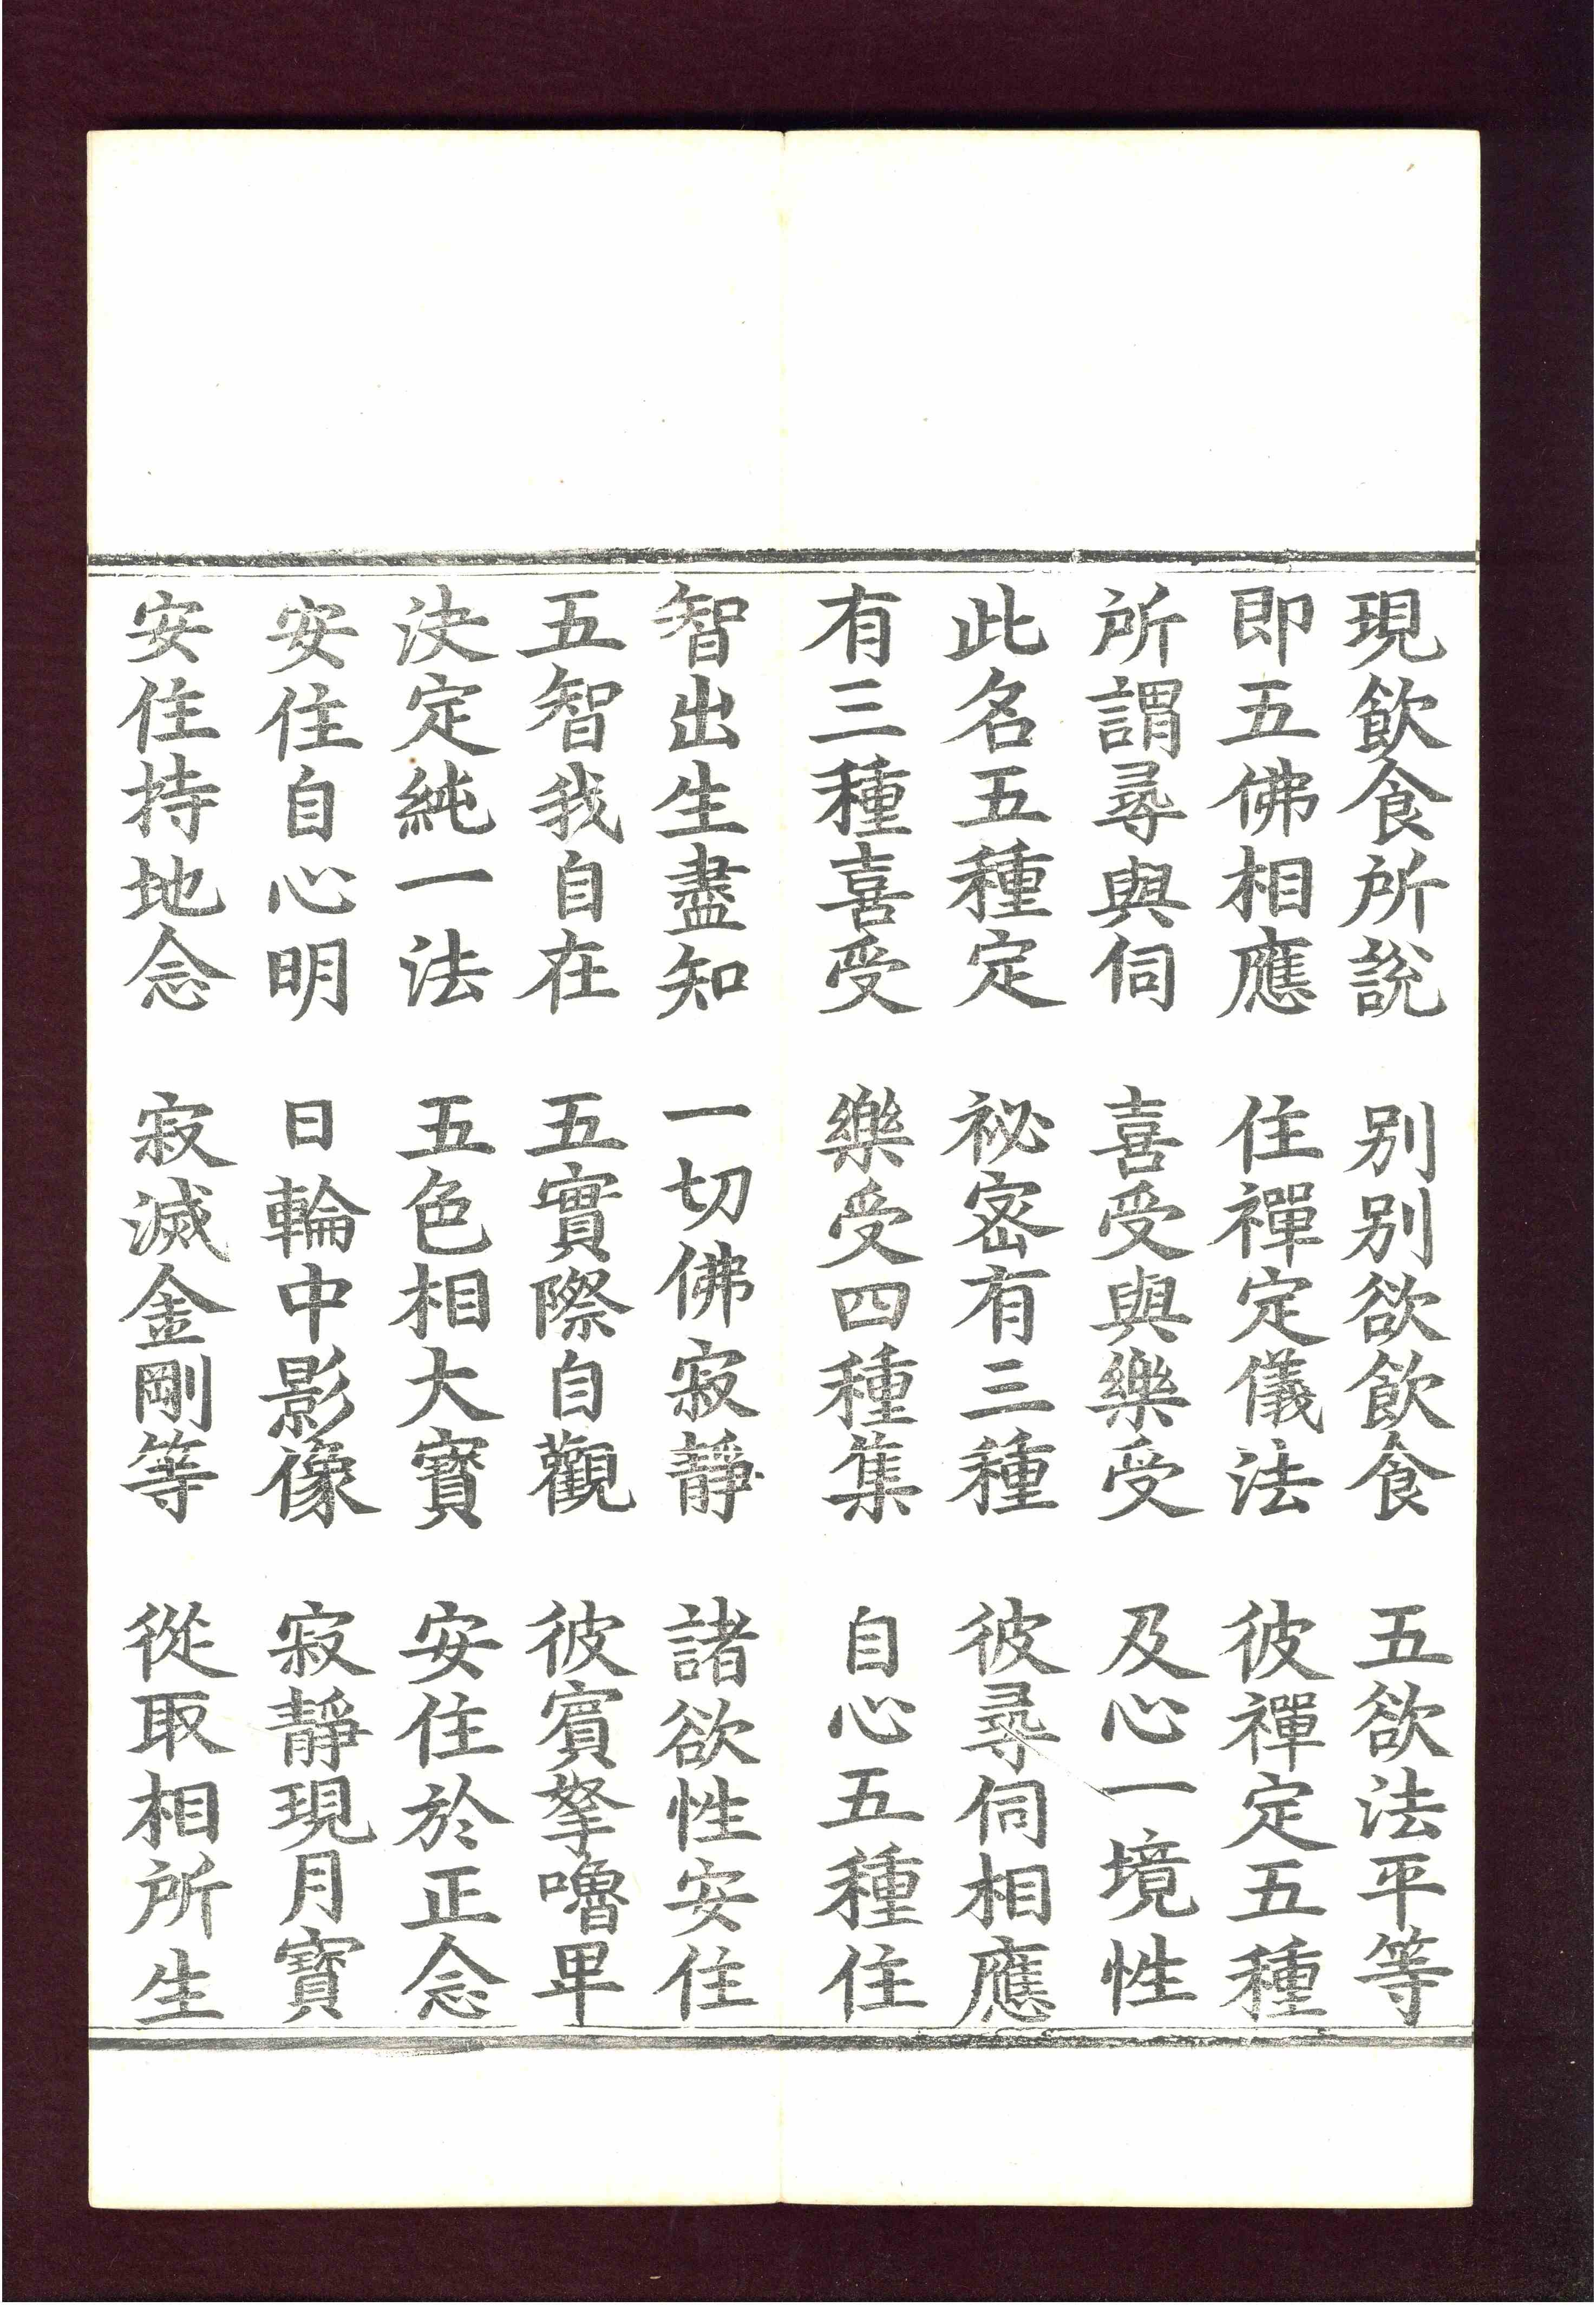 現飲食所說　別別欲飲食　五欲法平等
即五佛相應　住禪定儀法　彼禪定五種
所謂尋與伺　喜受與樂受　及心一境性
此名五種定　祕密有三種　彼尋伺相應
有三種喜受　樂受四種集　自心五種住
智出生盡知　一切佛寂靜　諸欲性安住
五智我自在　五實際自觀　彼賓拏嚕畢
決定純一法　五色相大寶　安住於正念
安住自心明　日輪中影像　寂靜現月寶
安住持地念　寂滅金剛等　從取相所生